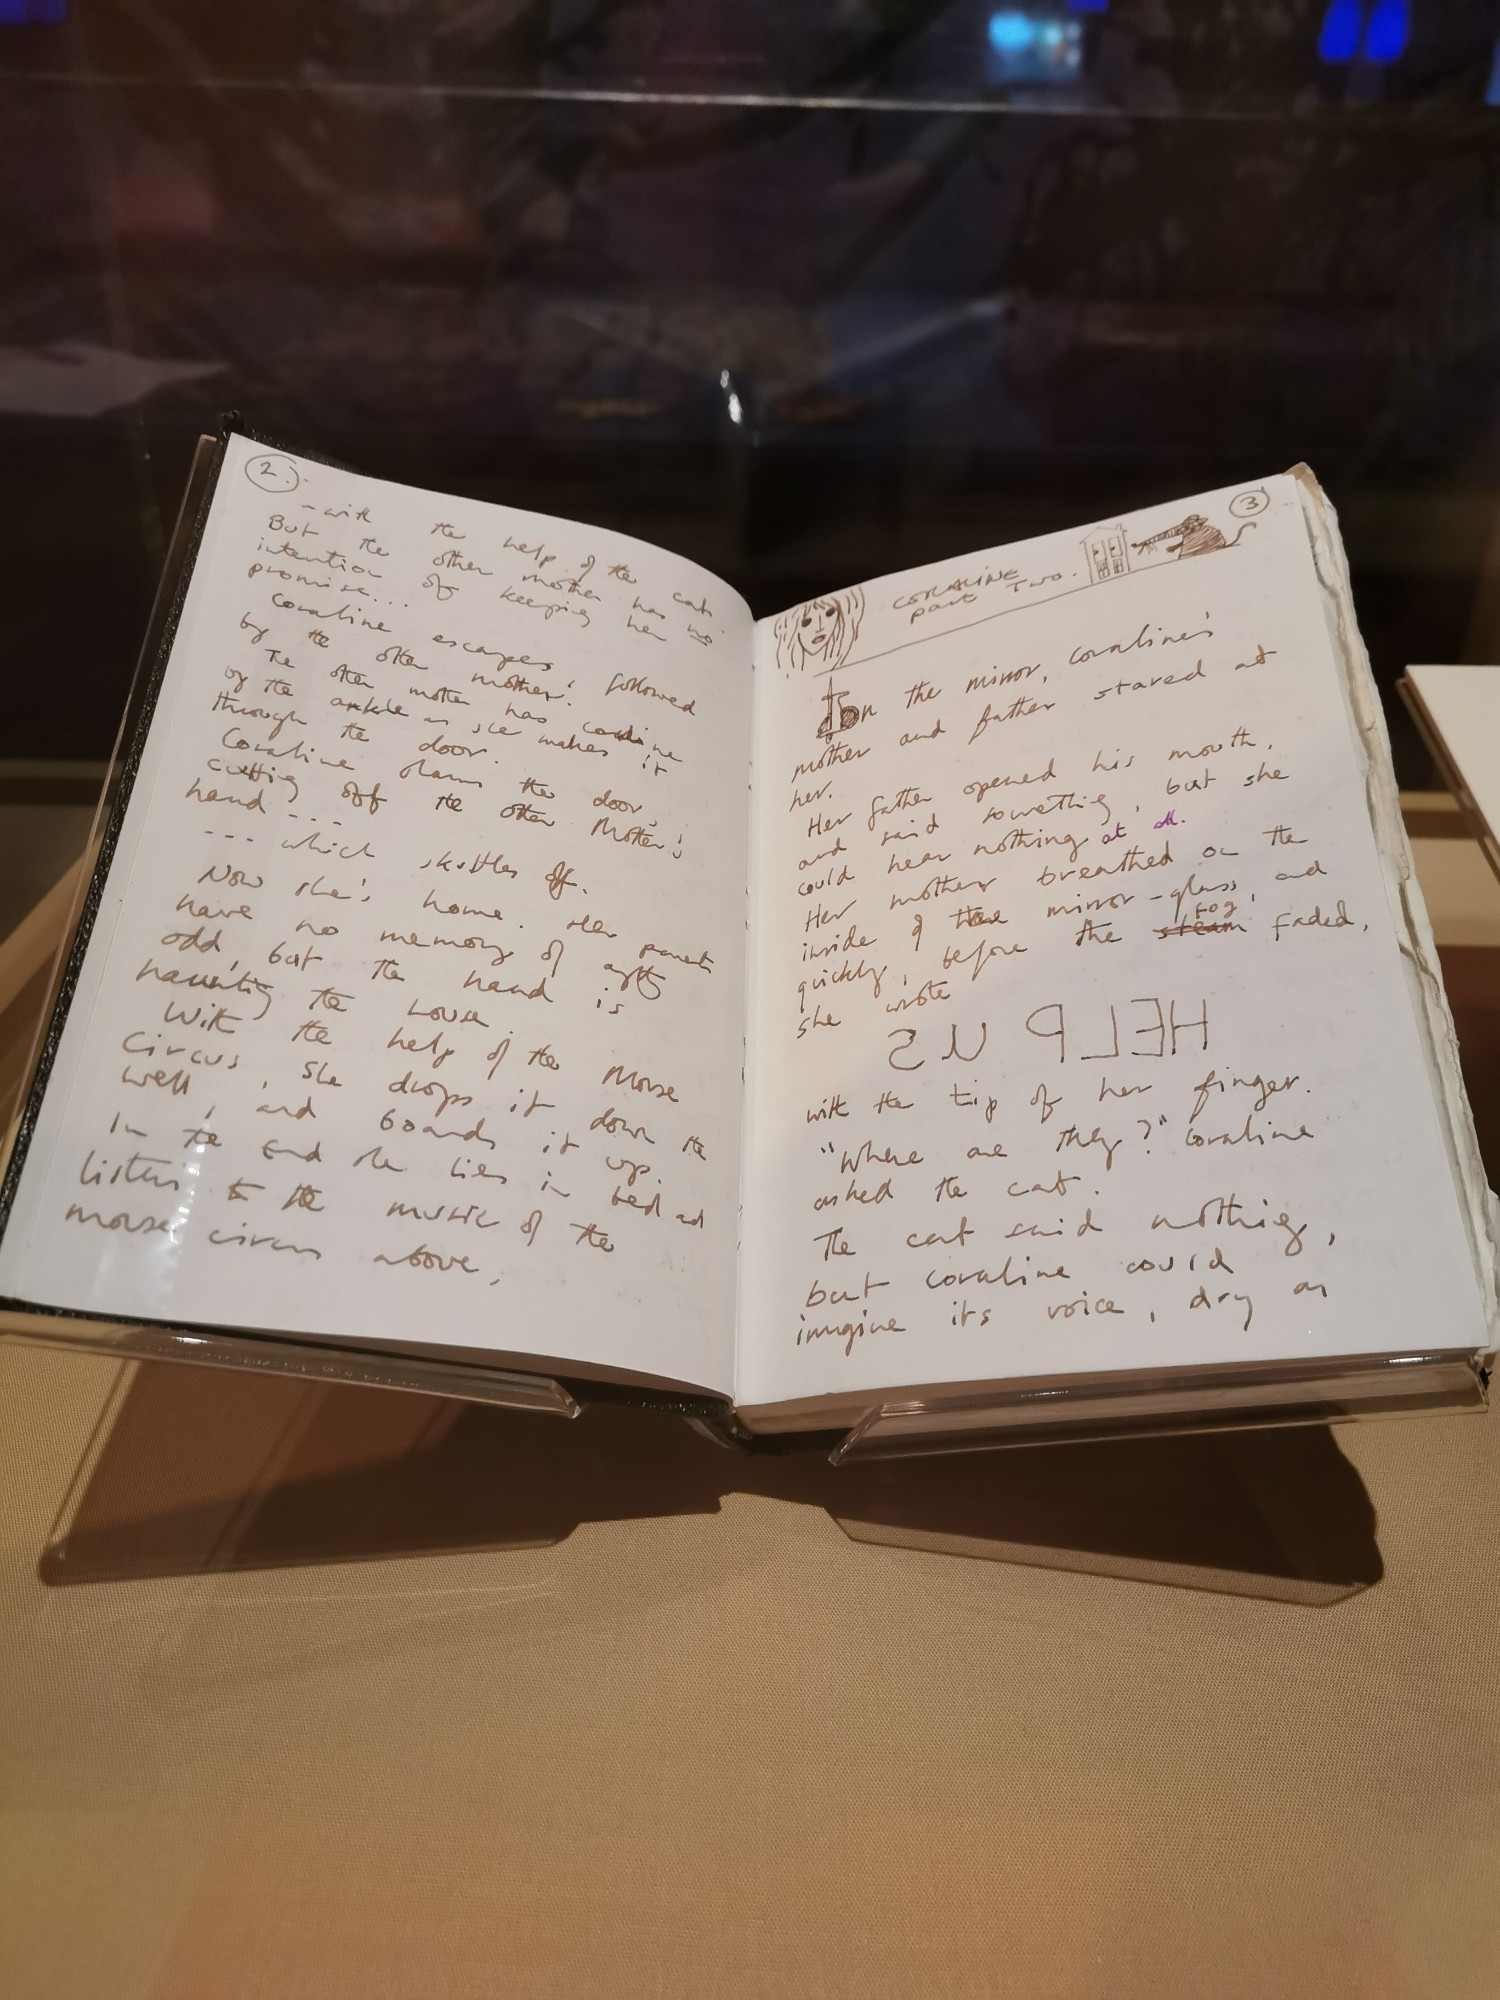 2.
- with the help of the cat.
But the other mother has no
intention of keeping her
promise...
Coraline escapes, followed
by the other mother.
The other mother has Coraline
by the ankle as she makes it
through the door.
Coraline slams the door,
cutting off the other Mother's
hand ---
--- which skuttles off.
Now she's home. Her parents
have no memory of anything
odd, but the hand is
haunting the house.
With the help of the Mouse
Circus, she drops it down the
well, and boards it up.
In the End she lies in bed and
listens to the music of the
mouse circus above,
3
CORALINE
part Two.
In the mirror, Coraline's
mother and father stared at
her.
Her father opened his mouth,
and said something, but she
could hear nothing at all.
Her mother breathed on the
inside of the mirror-glass, and
quickly, before the steam fog faded,
she wrote
HELP US
with the tip of her finger.
"Where are they?" Coraline
asked the cat.
The cat said nothing,
but Coraline could
imagine its voice, dry as